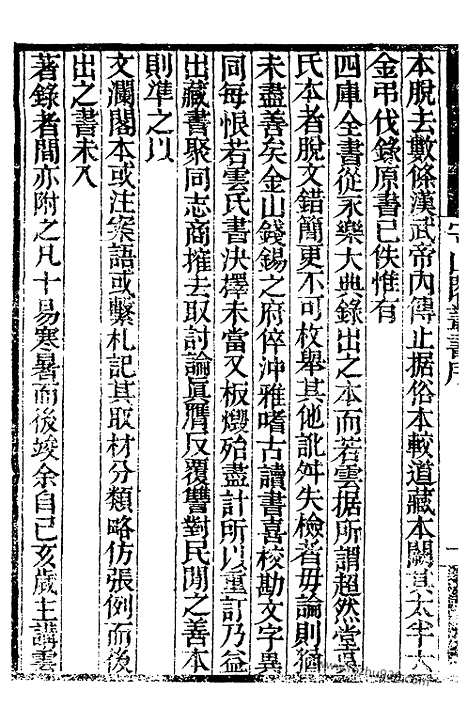 本脫去數條漢武帝內傳止据俗本較道藏本闕其太半大
金弔伐錄原書已佚惟有
四庫全書從永樂大典錄出之本而若雲据所謂超然堂吳
氏本者脫文錯簡更不可枚舉其他訛舛失檢者毋論則猶
未盡善矣金山錢錫之府倅沖雅嗜古讀書喜校勘文字異
同每恨若雲氏書決擇未當又板燬殆盡計所以重訂乃益
出藏書聚同志商搉去取討論眞贋反覆讐對民閒之善本
則準之以
文瀾閣本或注案語或繫札記其取材分類略仿張例而後
出之書未入
著錄者間亦附之凡十易寒暑而後竣余自己亥歲主講雲